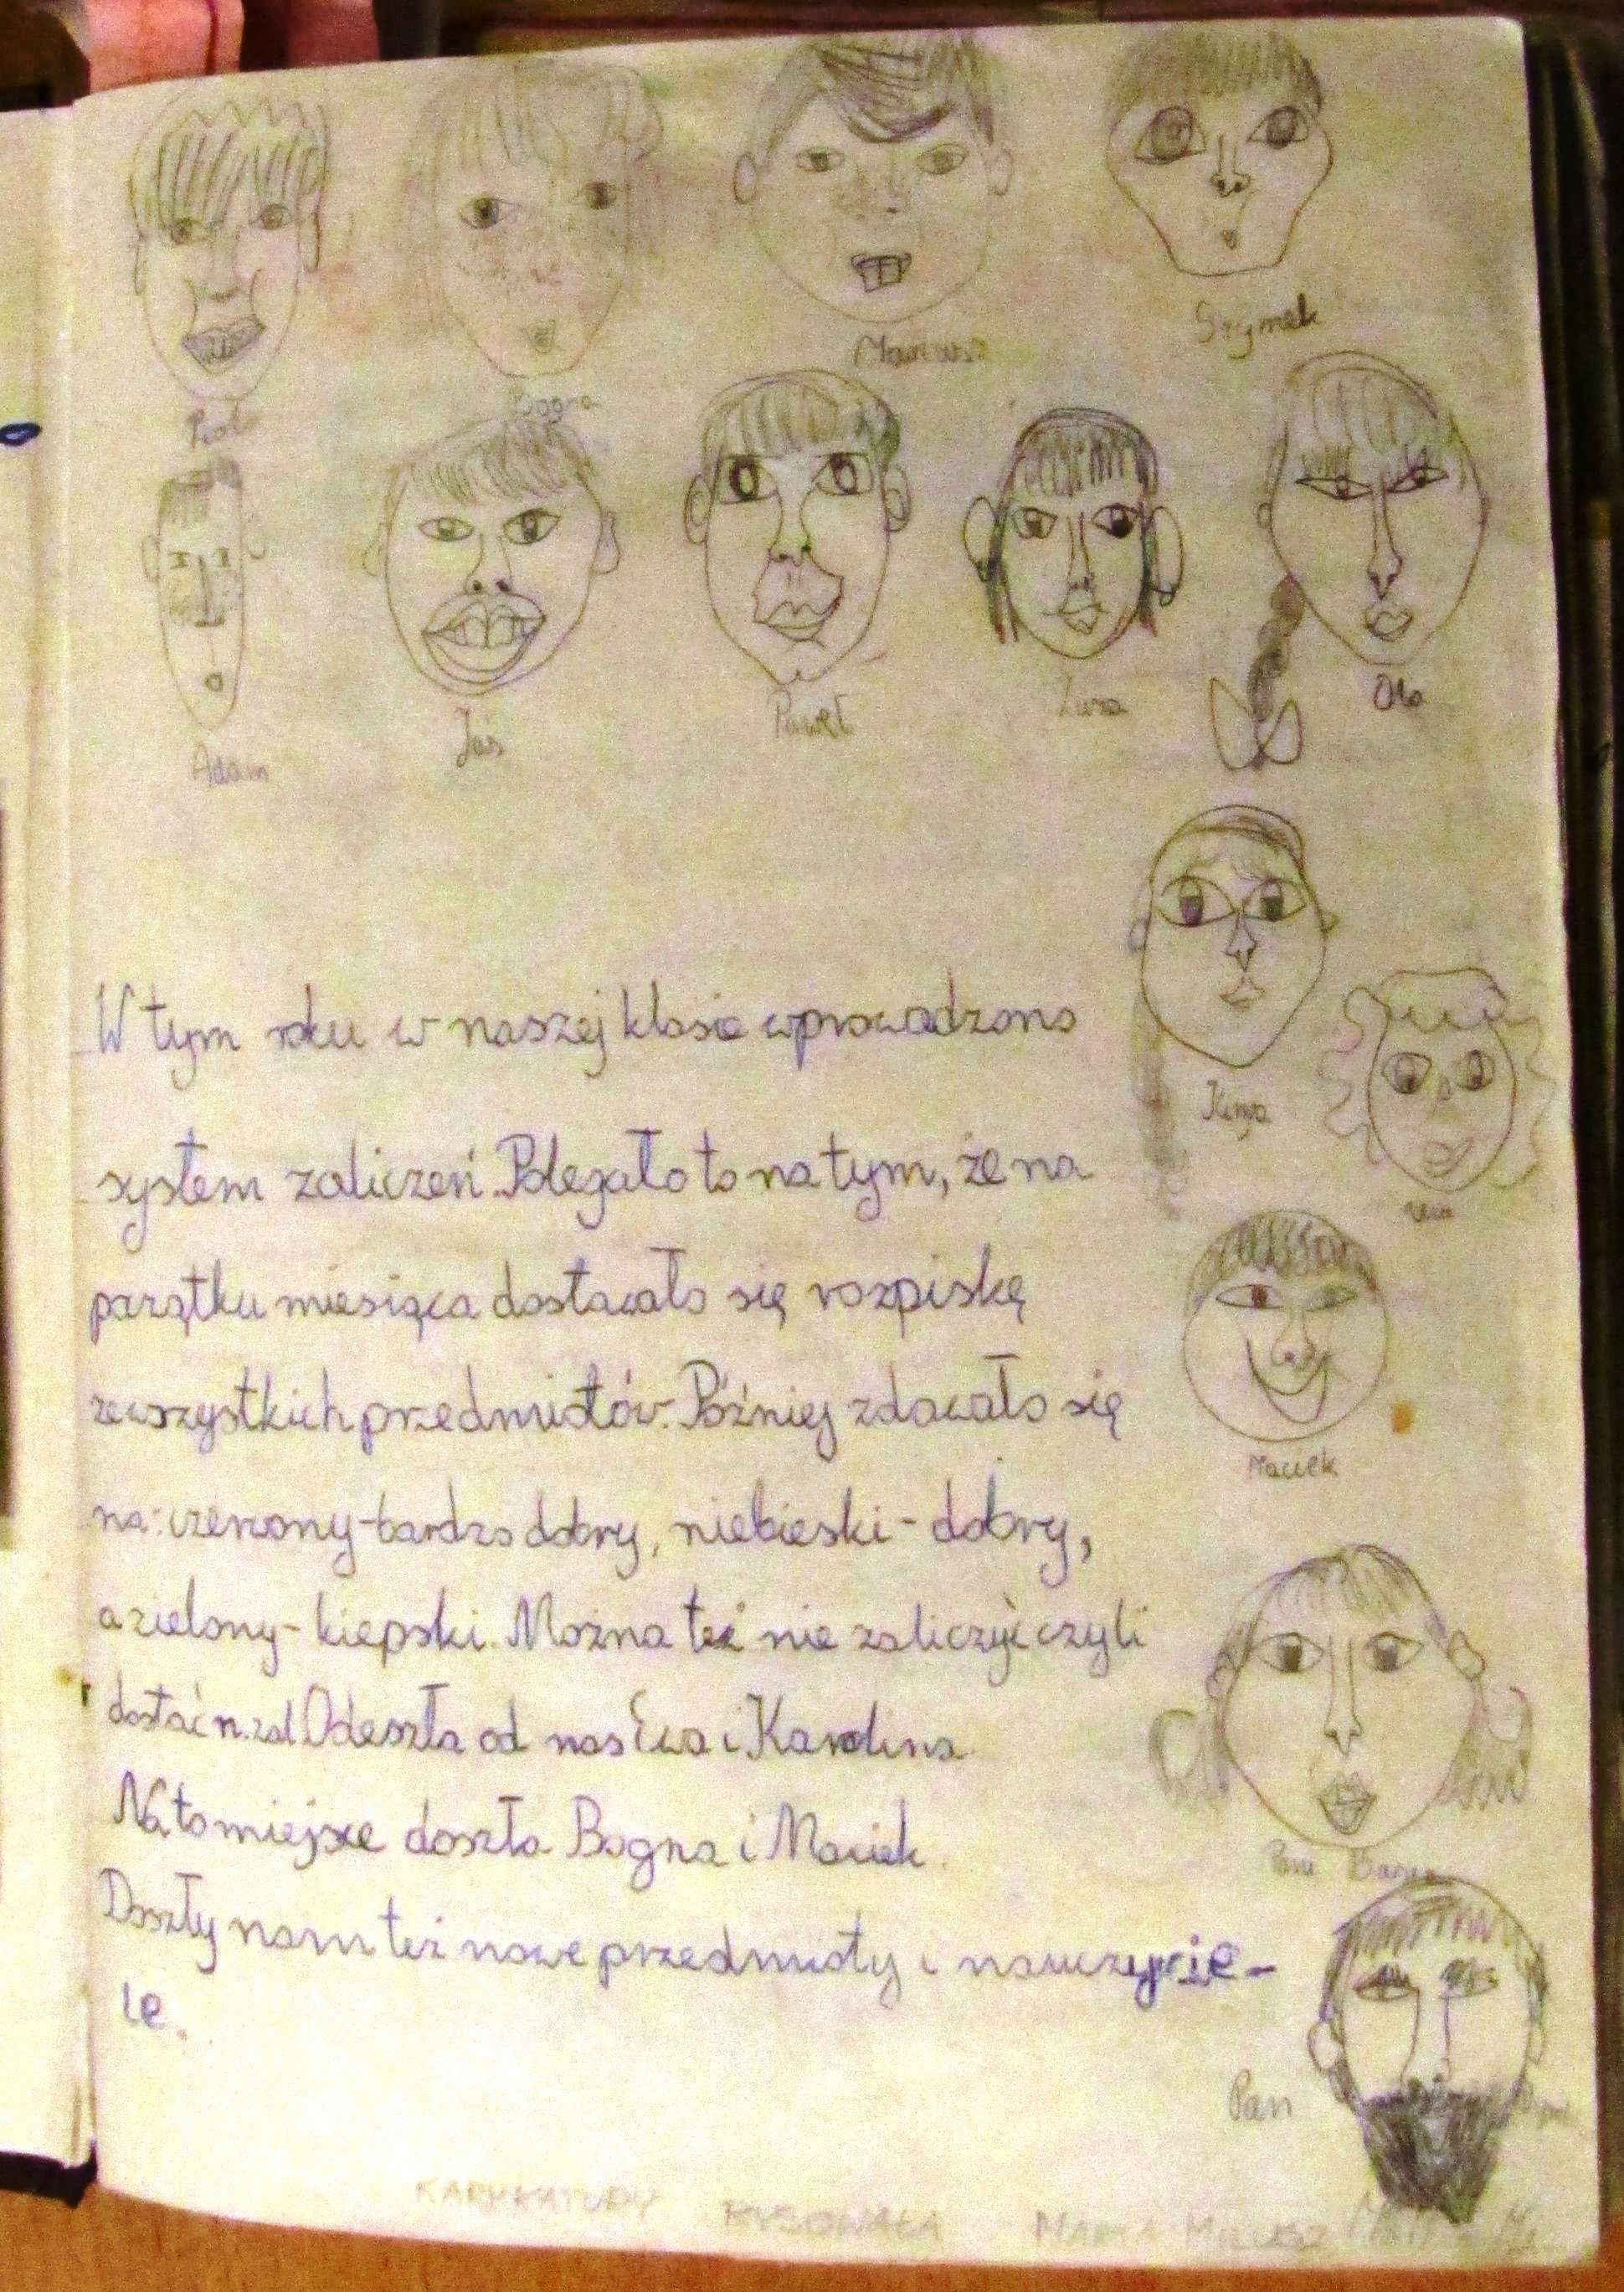 Bogna
Mariusz
Szymek
Adam
Jaś
Paweł
Zuza
Ola
Kinga
Maciek
W tym roku w naszej klasie wprowadzono
system zaliczeń. Polegało to na tym, że na
początku miesiąca dostawało się rozpiskę
ze wszystkich przedmiotów. Później zdawało się
na: czerwony - bardzo dobry, niebieski - dobry,
a zielony - kiepski. Można też nie zaliczyć czyli
dostać n.zal Odeszła od nas Ewa i Karolina.
Na to miejsce doszła Bogna i Maciek.
Doszły nam też nowe przedmioty i nauczycie-
le.
Pani
Pan
KARYKATURY RYSOWAŁA MARTA